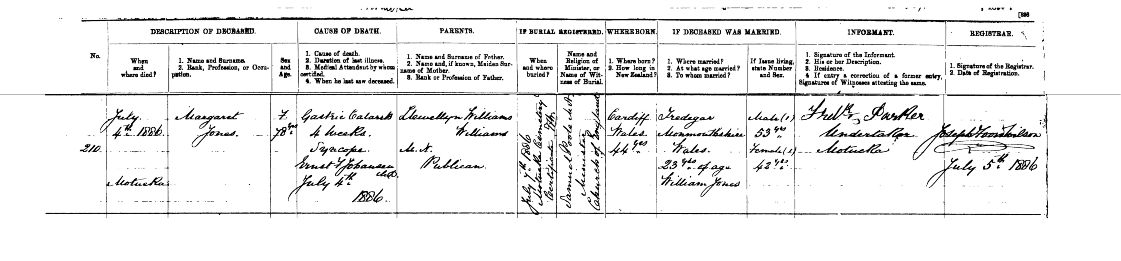 [886
DESCRIPTION OF DECEASED.
CAUSE OF DEATH.
PARENTS.
IF BURIAL REGISTERED.
WHERE BORN.
IF DECEASED WAS MARRIED.
INFORMANT.
REGISTRAR.
No.
When
and
where died?
1. Name and Surname.
2. Rank, Profession, or Occu-
pation.
Sex
and
Age.
1. Cause of death.
2. Duration of last illness.
3. Medical Attendant by whom
certified.
4. When he last saw deceased.
1. Name and Surname of Father.
2. Name and, if known, Maiden Sur-
name of Mother.
3. Rank or Profession of Father.
When
and where
buried?
Name and
Religion of
Minister, or
Name of Wit-
ness of Burial.
1. Where born?
2. How long in
New Zealand?
1. Where married?
2. At what age married?
3. To whom married?
If Issue living,
state Number
and Sex.
1. Signature of the Informant.
2. His or her Description.
3. Residence.
4. If entry a correction of a former entry,
Signatures of Witnesses attesting the same.
1. Signature of the Registrar.
2. Date of Registration.
210.
July
4th 1886
Motueka
Margaret
Jones.
F.
78 yrs
Gastric Catarrh
4 weeks.
Syncope
Ernst F Johansen
July 4th
1886.
Llewellyn Williams
Williams
M. N.
Publican.
July 7th 1886
Motueka Cemetery
Samuel Poole M.A.
Minister
Church of England
Cardiff
Wales
44 yrs
Tredegar
Monmouthshire
Wales.
23 yrs of age
William Jones
Male (1)
53 yrs
Female (1)
42 yrs
Fredk Parker
Undertaker
Motueka
Joseph Foord Wilson
July 5th 1886